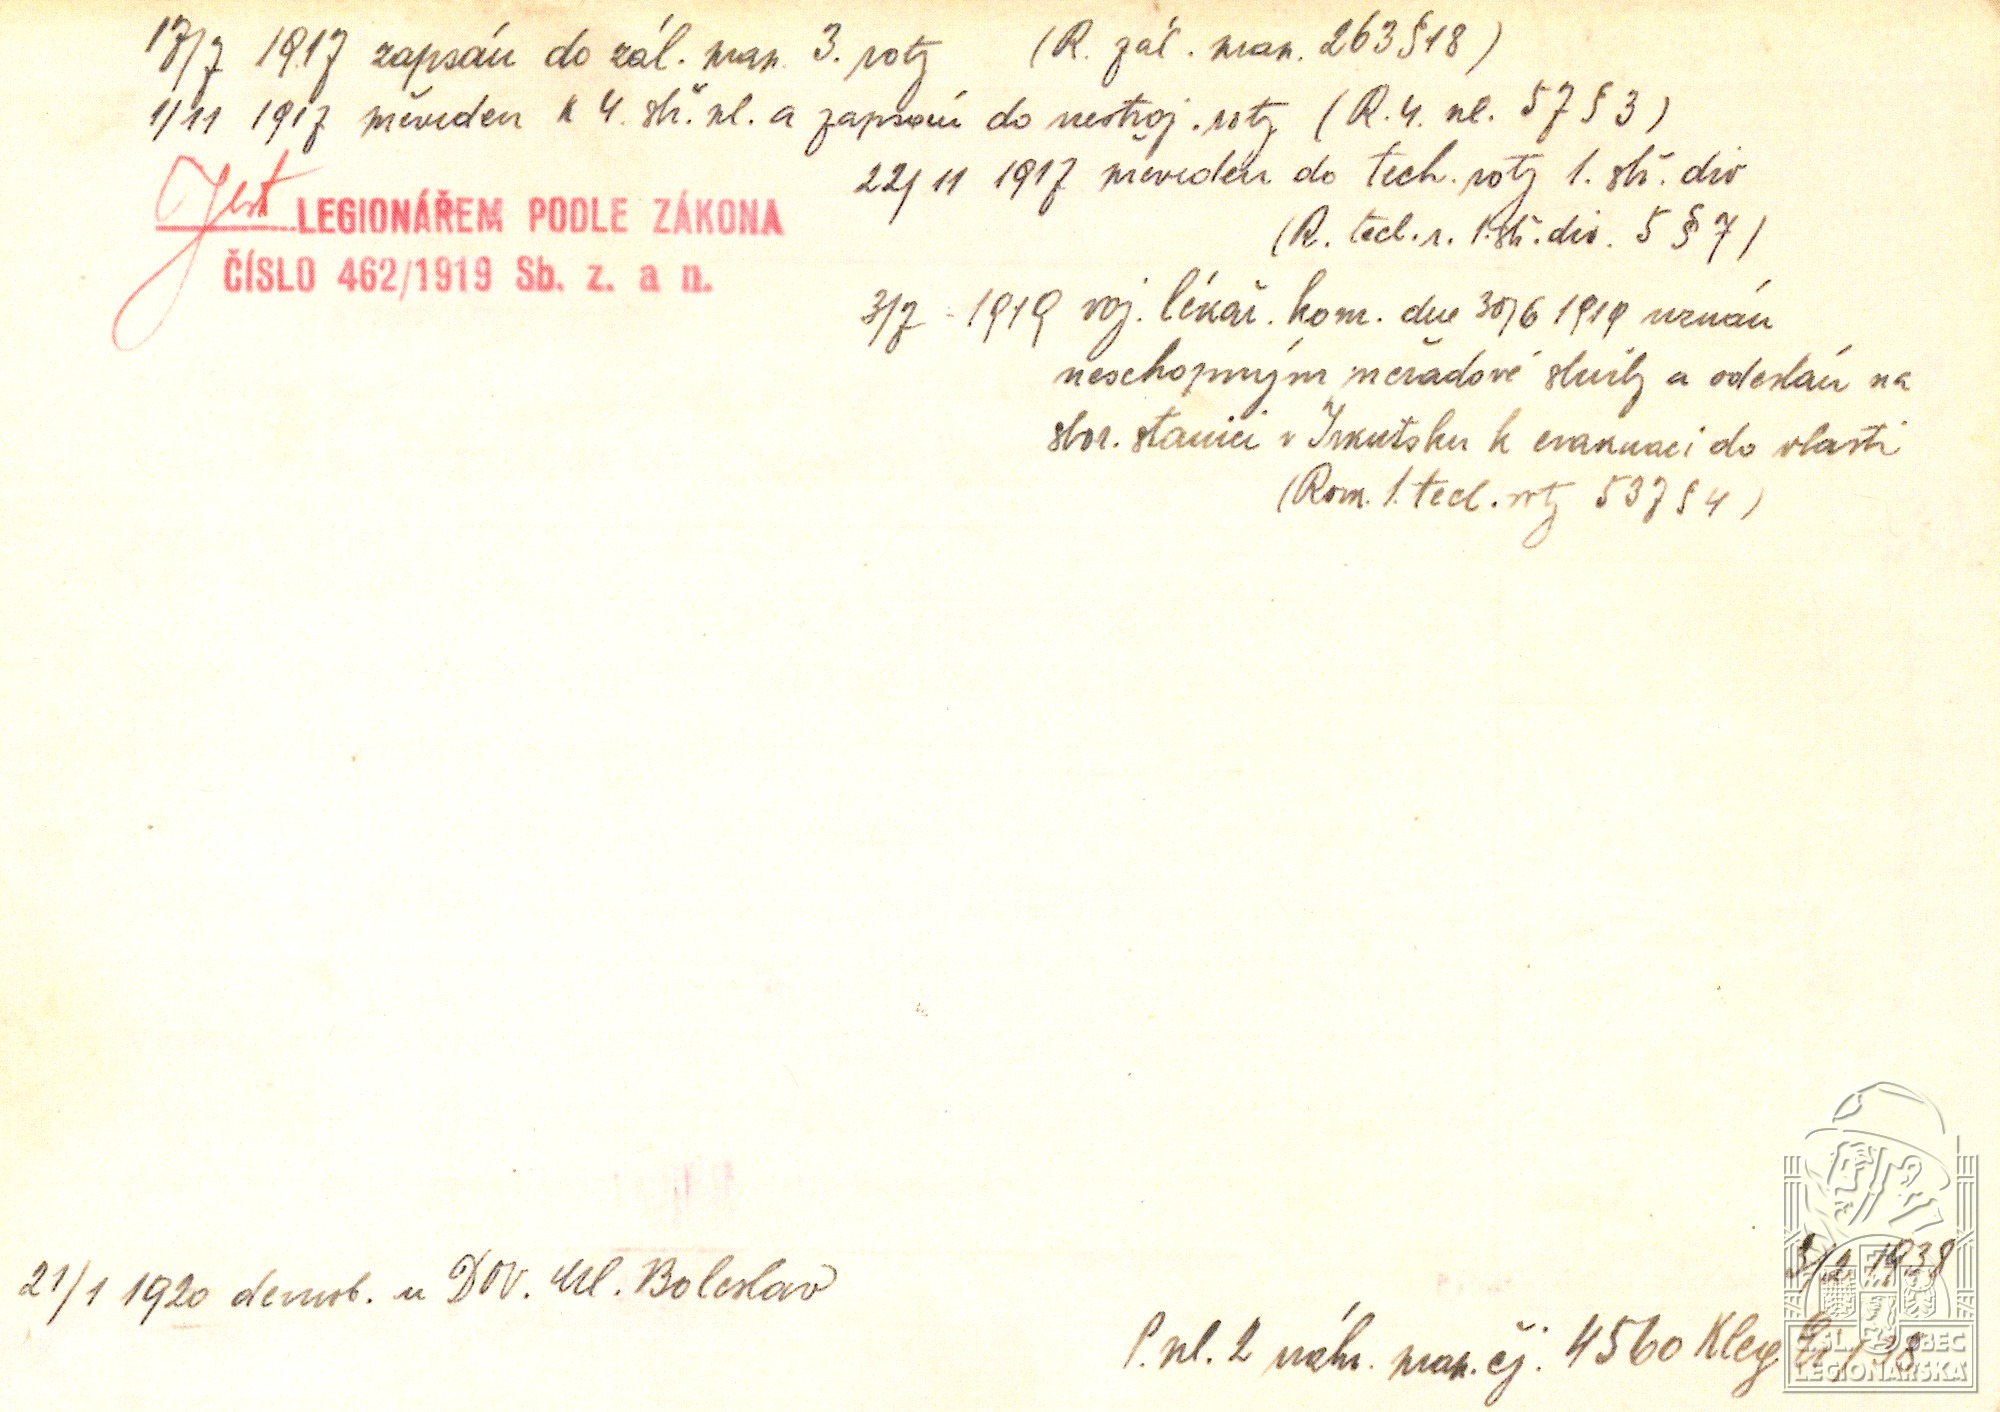 17/7 1917 zapsán do zál. man. 3. roty (R. zál. man. 263 § 18)
1/11 1917 převeden k 4. stř. pl. a zapsán do nestroj. roty (R. 4. pl. 57 § 3)
22/11 1917 převeden do tech. roty 1. stř. div
(R. tech. r. 1. stř. div. 5 § 7)
Jest LEGIONÁŘEM PODLE ZÁKONA
ČÍSLO 462/1919 Sb. z. a n.
3/7 - 1919 voj. lékař. kom. dne 30/6 1919 uznán
neschopným pořadové služby a odeslán na
sbor. stanici v Irkutsku k evakuaci do vlasti
(Rom. 1. tech. roty 537 § 4)
21/1 1920 demob. u DOV. Ml. Boleslav
1938
P. pl. 2 náhr. man. čj. 4560 Kleg
ČSL. OBEC
LEGIONÁŘSKÁ